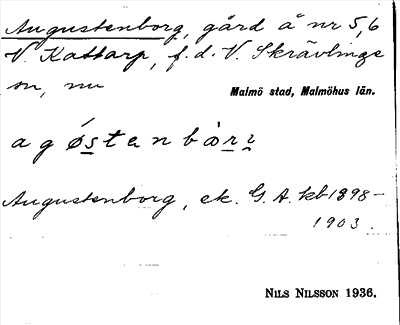 Augustenborg, gård å nr 5,6
V. Kattarp, f.d. V. Skrävlinge
sn, nu Malmö stad, Malmöhus län.
Augustenborg, ek. G. A. kb 1898–
1903.
NILS NILSSON 1936.